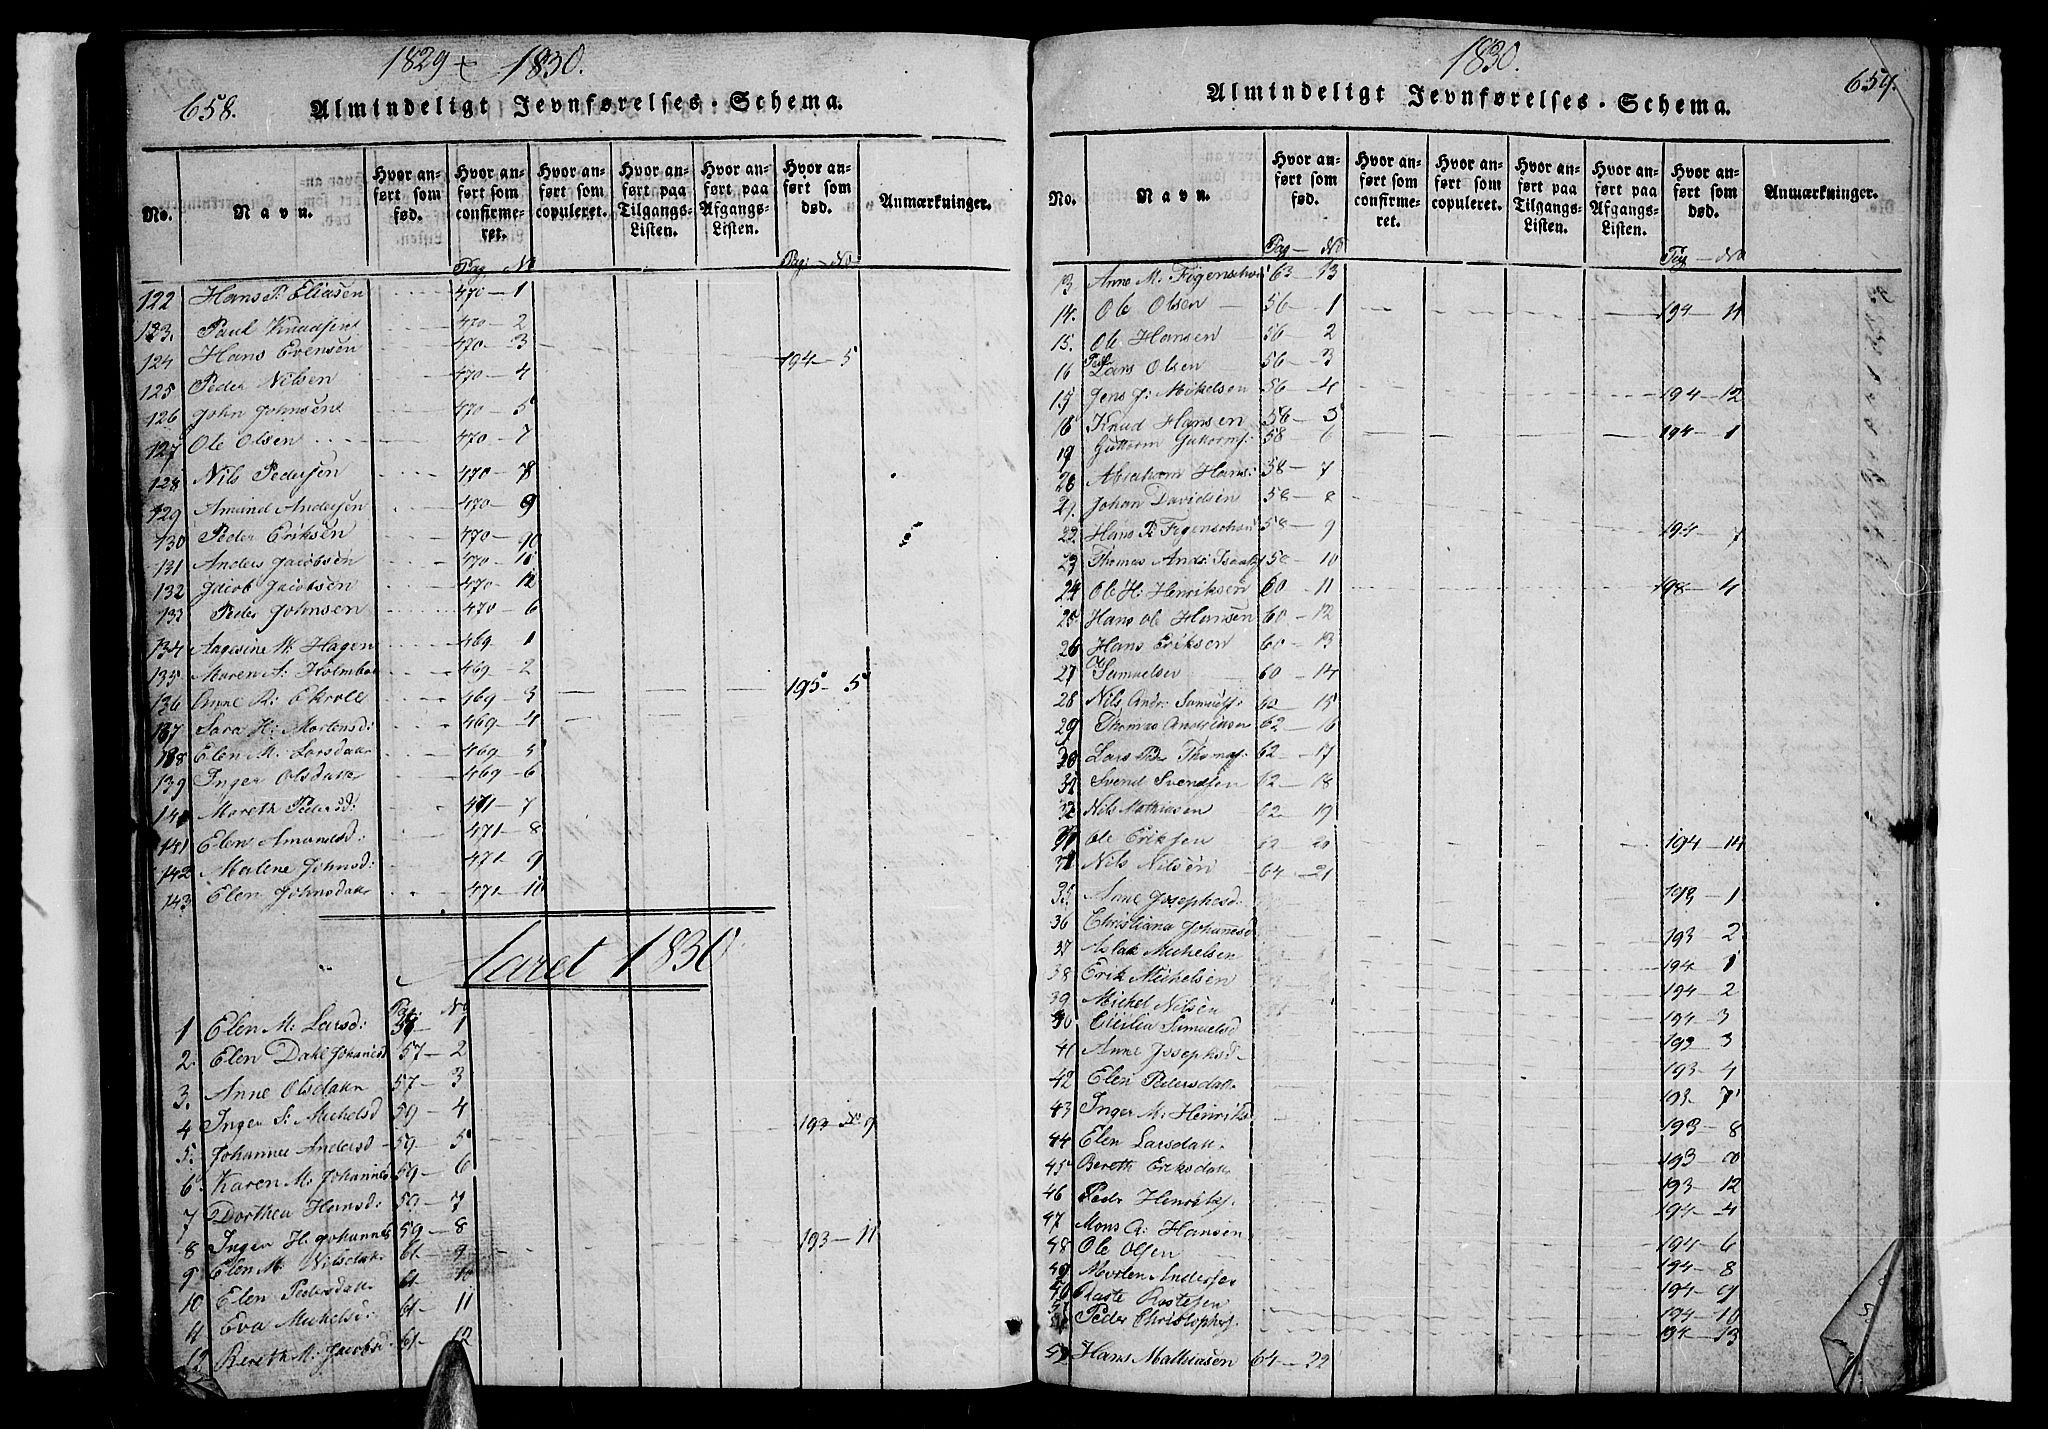 1829 - 1830.
658.
Almindeligt Jevnførelses-Schema.
No.
Navn.
Hvor anført som fød.
Hvor anført som confirmeret.
Hvor anført som copuleret.
Hvor anført paa Tilgangs-Listen.
Hvor anført paa Afgangs-Listen.
Hvor anført som død.
Anmærkninger.
Pag - No
Pag: - No
122 Hans P: Eliasen 470 - 1
123. Paul Knudsen 470 - 2
124 Hans Evensen 470 - 3 194 - 5
125 Peder Nilsen 470 - 4
126 John Johnsen 470 - 5
127 Ole Olsen 470 - 7
128 Nils Pedersen 470 - 8
129 Amund Andersen 470 - 9
130 Peder Eriksen 470 - 10
131 Anders Jacobsen 470 - 11
132 Jacob Jacobsen 470 - 12
133 Peder Johnsen 470 - 6
134 Aagesine M. Hagen 469 - 1
135 Maren A: Holmboe 469 - 2
136 Anne R: Ekroll 469 - 3 195 - 5
137 Sara H: Mortensd: 469 - 4
138 Elen M: Larsdatt 469 - 5
139 Inger Olsdatt 469 - 6
140 Mareth Pedersd: 471 - 7
141 Elen Amundsd: 471 - 8
142 Malene Johnsd: 471 - 9
143 Elen Johnsdatt 471 - 10
Aaret 1830
Pag: No
1 Elen M: Larsd: 57 - 1
2. Elen Dahl Johannesd 57 - 2
3. Anne Olsdattr 57 - 3
4 Inger S: Michelsd 59 - 4 193 - 9
5. Johannee Andersd 59 - 5
6 Karen M: Johannesd 59 - 6
7 Dorthea Hansd: 59 - 7
8 Inger H. Johannes 59 - 8 193 - 11
9 Elen M. Nilsdatt 61 - 9
10 Elen Pedersdatt 61 - 10
11 Eva Michelsd: 61 - 11
12 Bereth M: Jacobsd: 61 - 12
1830.
659.
Almindeligt Jevnførelses-Schema.
No.
Navn.
Hvor anført som fød.
Hvor anført som confirmeret.
Hvor anført som copuleret.
Hvor anført paa Tilgangs-Listen.
Hvor anført paa Afgangs-Listen.
Hvor anført som død.
Anmærkninger.
Pag - No
Pag - No
13 Anne M. Figenschou 63 - 13
14. Ole Olsen 56 - 1 194 - 11
15. Ole Hansen 56 - 2
16 Lars Olsen 56 - 3
15 Jens J: Mikelsen 56 - 4 194 - 12
18 Knud Hansen 58 - 5
19 Guttorm Guttorms: 58 - 6 194 - 1
20 Abraham Hans: 58 - 7
21. Johan Davidsen 58 - 8
22. Hans P. Figenschou 58 - 9 194 - 7
23 Thomas Andr: 58 - 10
24 Ole H: Henriksen 60 - 11 198 - 4
25 Hans Ol Hansen 60 - 12
26 Hans Eriksen 60 - 13
27 Samuelsen 60 - 14
28 Nils Andr: Samuels: 62 - 15
29 Thomas Andersen 62 - 16
30 Lars Peder Thomas: 62 - 17
31 Svend Svendsen 62 - 18
32 Nils Mathiesen 62 - 19
Ole Eriksen 62 - 20 194 - 14
Nils Nilsen 64 - 21
35. Anne Josephesd. 193 - 1
36 Christiana Johanesd 193 - 2
37 Aslak Michelsen 194 - 1
38 Erik Michelsen 194 - 2
39 Michel Nilsen 194 - 3
40 Cicilia Samuelsd 193 - 3
41 Anne Josephsd 193 - 4
42 Elen Pedersdatt 193 - 7
43 Inger M: Henriks 193 - 8
44 Elen Larsdatt
45 Bereth Eriksdatt 193 - 12
46 Peder Henriks. 194 - 4
47 Mons A: Hansen 194 - 6
48 Ole Olsen 194 - 8
49 Morten Andersen 194 - 9
50 Raste Rastesen 194 - 10
Peder Christophers. 194 - 13
Hans Mathiasen 64 - 22